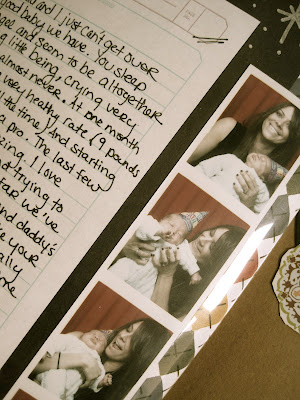 and I just can't get over
good baby we have. You sleep
gel and seem to be altogether
little being, crying very
almost never. At one month
very healthy rate (9 pounds
time) And starting
a pro. The last few
ing. I love
t trying to
we've
nd daddy's
e your
ally
me